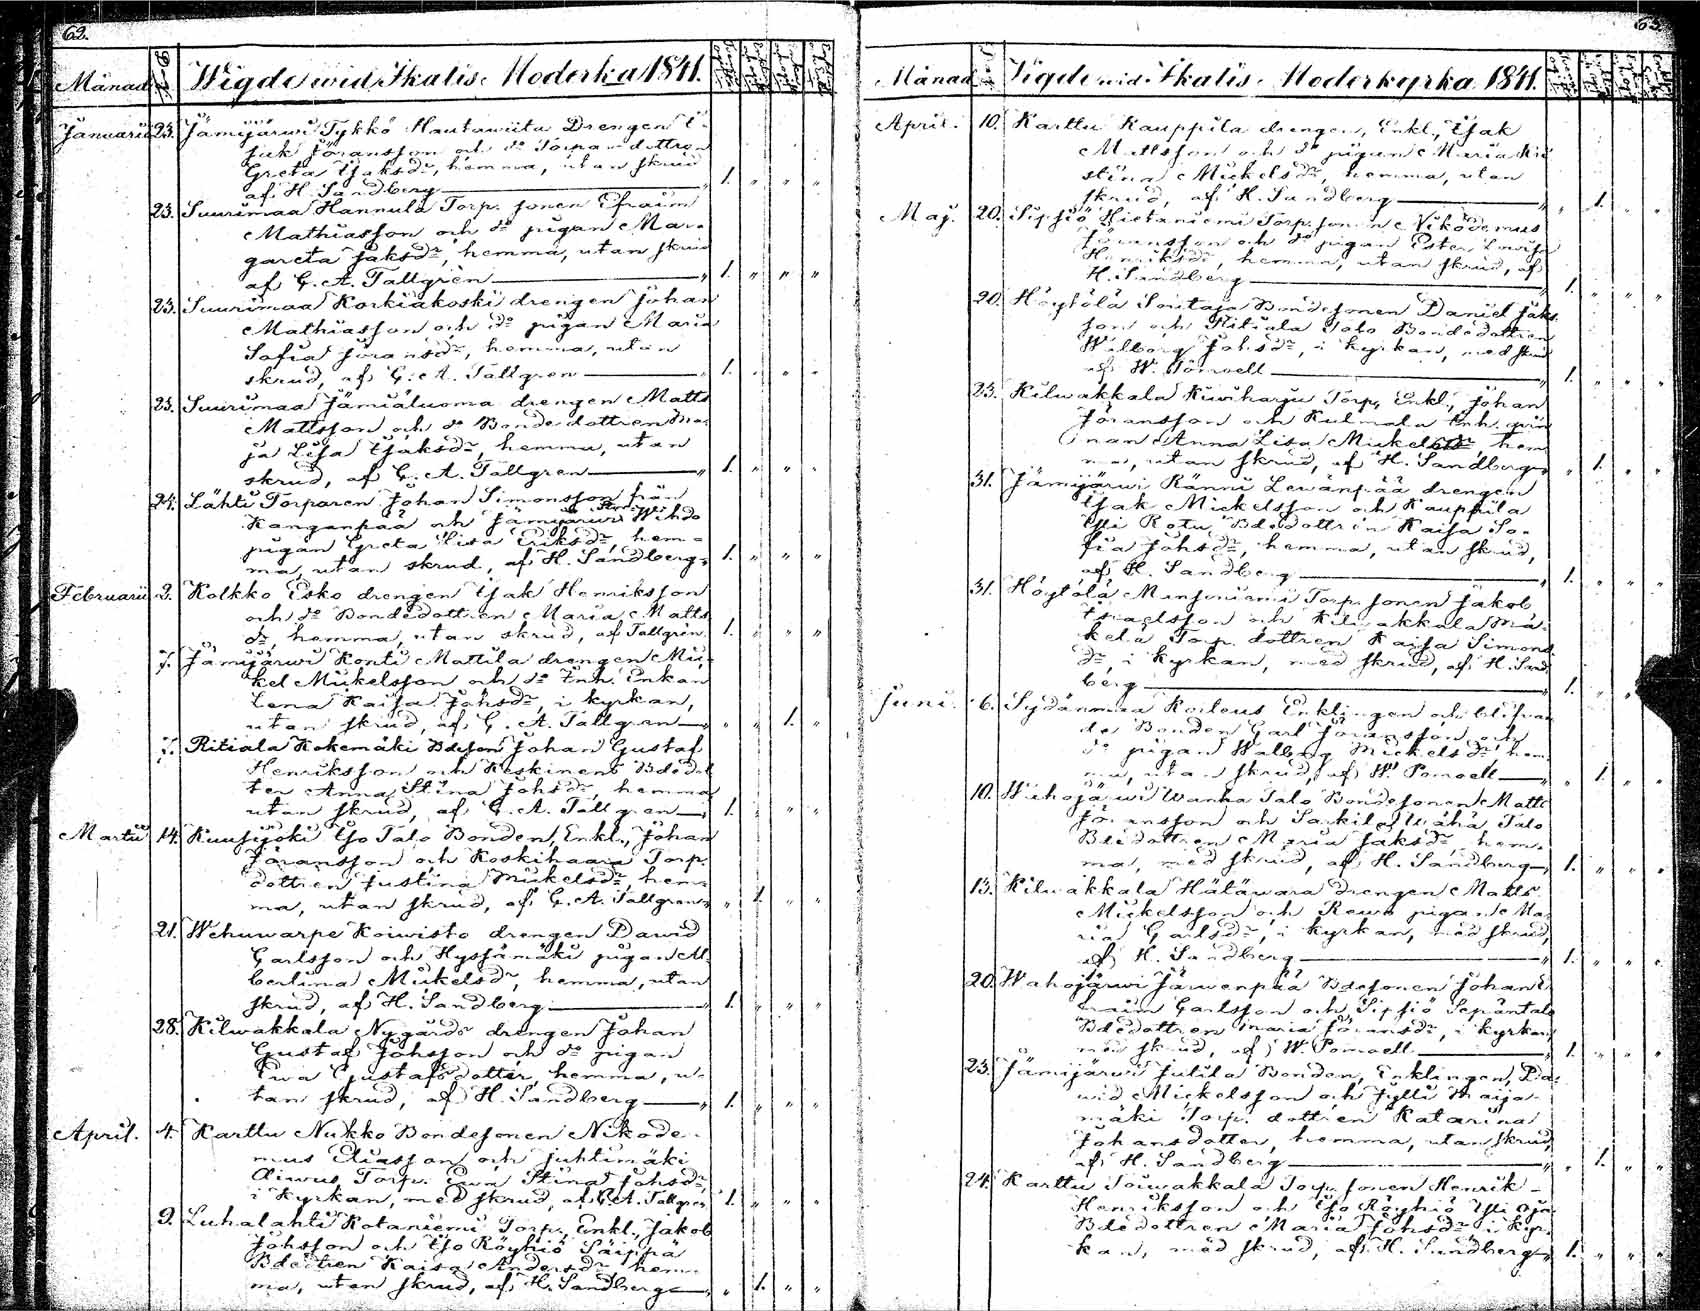 62.
Månad Wigde wid Ikalis Moderka 1841.
Januarii 23. Jämijärwi Tykkö Hautawiita Drengen I-
sak Jöransson och do Torpare dottren
Greta Isaksdr, hemma, utan skrud
af H. Sandberg 1. " " "
23. Suurimaa Hannula Torp. sonen Efraim
Mathiasson och do pigan Mar-
gareta Jaksdr, hemma, utan skrud
af G. A. Tallgren 1. " " "
23. Suurimaa Korkiakoski drengen Johan
Mathiasson och do pigan Maria
Sofia Jöransdr, hemma, utan
skrud, af G. A. Tallgren 1. " " "
23. Suurimaa Jämiäluoma drengen Matts
Mattsson och do Bondedottren Ma-
ja Lisa Isaksdr, hemma, utan
skrud, af G. A. Tallgren 1. " " "
24. Lähti Torparen Johan Simonsson från
Kanganpää och Jämijärwi Wihdo
pigan Greta Lisa Eriksdr, hem-
ma, utan skrud, af H. Sandberg 1. " " "
Februarii 2. Kolkko Esko drengen Isak Henriksson
och do Bondedottren Maria Matts
dr, hemma, utan skrud, af Tallgren. 1. " " "
7. Jämijärwi Konti Mattila drengen Mic-
kel Mickelsson och do Inh. Enkan
Lena Kaisa Johsdr, i kyrkan,
utan skrud, af G. A. Tallgren " " 1. "
7. Ritiala Kokemäki Bdeson Johan Gustaf
Henriksson och Keskinens Bdedot
ter Anna Stina Johsdr, hemma
utan skrud, af G. A. Tallgren 1. " " "
Martii 14. Kuusijoki Iso Talo Bonden, Enkl., Johan
Jöransson och Koskihaara Torp.
dottren Justina Mickelsdr, hem-
ma, utan skrud, af G. A. Tallgren " 1. " "
21. Wehuwarpe Koiwisto drengen Dawid
Carlsson och Hyssämäki pigan Al-
bertina Mickelsdr, hemma, utan
skrud, af H. Sandberg 1. " " "
28. Kilwakkala Nygårds drengen Johan
Gustaf Johsson och do pigan
Ewa Gustafsdotter, hemma, u-
tan skrud, af H. Sandberg 1. " " "
April. 4. Karttu Nukko Bondesonen Nikode-
mus Eliasson och Juhtimäki
Torp. Ewa Stina Johsdr,
i kyrkan, med skrud, af G. A. Tallgren 1. " " "
9. Luhalahti Kotaniemi Torp., Enkl., Jakob
Johsson och Iso Röyhiö Säippä
Bdedtren Kaisa Andersdr hem-
ma, utan skrud, af H. Sandberg " 1. " "
63.
Månad Wigde wid Ikalis Moderkyrka 1841.
April. 10. Karttu Kauppila drengen, Enkl., Isak
Mattsson och do pigan Maria Kri
stina Mickelsdr, hemma, utan
skrud, af H. Sandberg " 1. " "
Maj. 20. Sipsiö Hietaniemi Torp. sonen Nikodemus
Jöransson och do pigan Ester Lovisa
Henriksdr, hemma, utan skrud, af
H. Sandberg 1. " " "
20. Höytölä Sontaja Bondesonen Daniel Jaks
son och Ritiala Talo Bondedottren
Walborg Johsdr, i kyrkan, med skrud
af W. Pomoell 1. " " "
23. Kilwakkala Kiwiharju Torp., Enkl., Johan
Jöransson och Kulmala Enk. qwin
nan Anna Lisa Mickelsdr, hem
ma, utan skrud, af H. Sandberg " 1. " "
31. Jämijärwi Ränni Lewänpää drengen
Isak Mickelsson och Kauppila
Yli Rotu Bdedottren Kaisa So-
fia Johsdr, hemma, utan skrud,
af H. Sandberg 1. " " "
31. Höytölä Mensuniemi Torp. sonen Jakob
Israelsson och Kilwakkala Mä-
kelä Torp. dottren Kaisa Simons
dr, i kyrkan, med skrud, af H. Sand
berg 1. " " "
Juni. 6. Sydänmaa Enklingen och blifvan
de Bonden Carl Jöransson och
do pigan Walborg Mickelsdr hem-
ma, utan skrud, af W. Pomoell " 1. " "
10. Wihojärwi Wanha Talo Bondesonen Matts
Jöransson och Sarkila Wähä Talo
Bdedottren Maria Jaksdr, hem-
ma, med skrud, af H. Sandberg 1. " " "
13. Kilwakkala Hätäwara drengen Matts
Mickelsson och Rewo pigan Ma
ria Carlsdr, i kyrkan, med skrud,
af H. Sandberg 1. " " "
20. Wahojärwi Järwenpää Bdesonen Johan E
fraim Carlsson och Sipsiö Sepäntalo
Bdedottren Maria Jöransdr, i kyrkan,
med skrud, af W. Pomoell 1. " " "
23. Jämijärwi Jutila Bonden, Enklingen, Da-
wid Mickelsson och Jylli Maija-
mäki Torp. dottren Katarina
Johansdotter, hemma, utan skrud,
af H. Sandberg " 1. " "
24. Karttu Toiwakkala Torp. sonen Henrik
Henriksson och Iso Röyhiö Yli Oja
Bdedottren Maria Johsdr i kyr-
kan, med skrud, af H. Sandberg 1. " " "